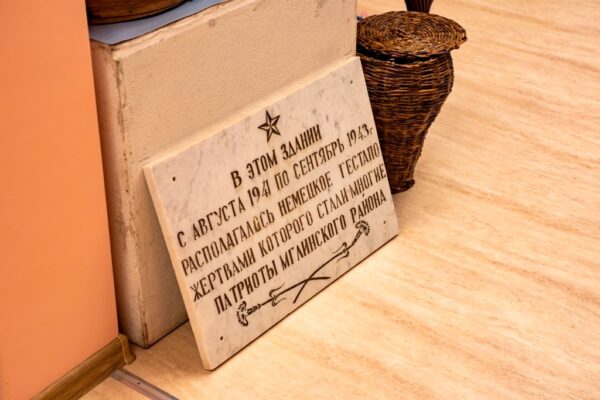 В ЭТОМ ЗДАНИИ
С АВГУСТА 1941 ПО СЕНТЯБРЬ 1943 г.
РАСПОЛАГАЛОСЬ НЕМЕЦКОЕ ГЕСТАПО
ЖЕРТВАМИ КОТОРОГО СТАЛИ МНОГИЕ
ПАТРИОТЫ МГЛИНСКОГО РАЙОНА